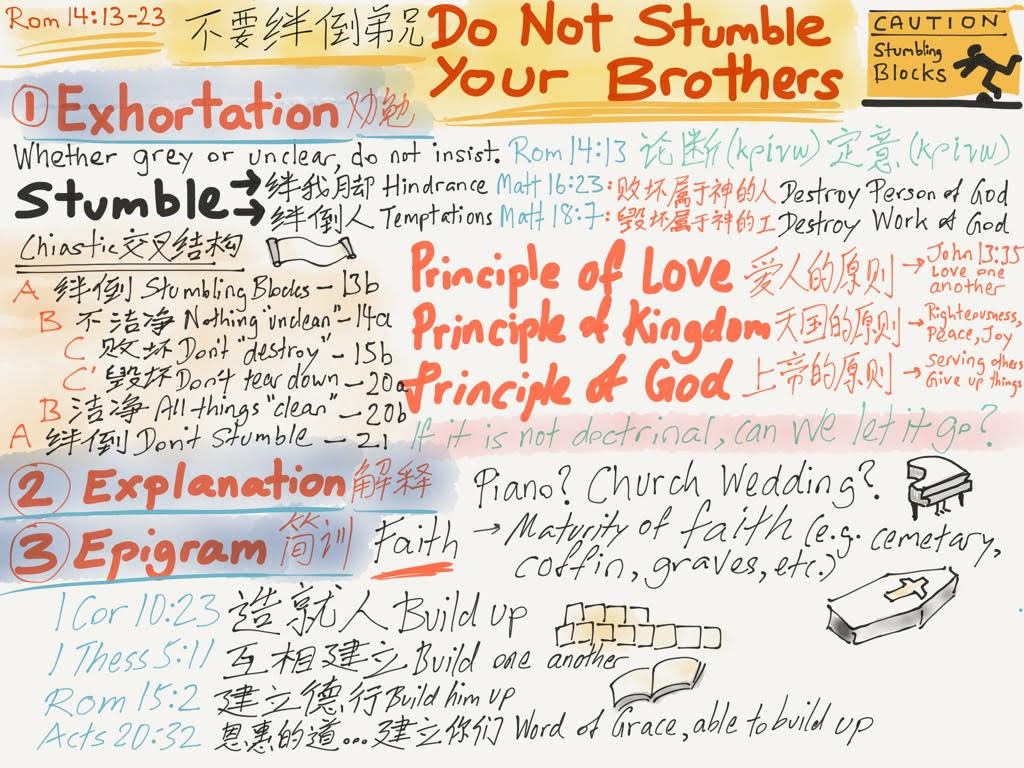 Rom 14:13-23 不要绊倒弟兄 Do Not Stumble Your Brothers
CAUTION
Stumbling
Blocks
① Exhortation 劝勉
Whether grey or unclear, do not insist. Rom 14:13 论断(κρινω) 定意(κρινω)
Stumble
→ 绊我脚 Hindrance Matt 16:23: 败坏属于神的人 Destroy Person of God
→ 绊倒人 Temptations Matt 18:7: 毁坏属于神的工 Destroy Work of God
Chiastic 交叉结构
A 绊倒 Stumbling Blocks - 13b
B 不洁净 Nothing "unclean" - 14a
C 败坏 Don't "destroy" - 15b
C' 毁坏 Don't tear down - 20a
B 洁净 All things "clean" - 20b
A 绊倒 Don't Stumble - 21
Principle of Love 爱人的原则 → John 13:35 Love one another
Principle of Kingdom 天国的原则 → Righteousness, Peace, Joy
Principle of God 上帝的原则 → Serving others Give up things
If it is not doctrinal, can we let it go?
② Explanation 解释 Piano? Church Wedding?
③ Epigram 简训 Faith → Maturity of faith (e.g. cemetary,
coffin, graves, etc.)
1 Cor 10:23 造就人 Build up
1 Thess 5:11 互相建立 Build one another
Rom 15:2 建立德行 Build him up
Acts 20:32 恩惠的道...建立你们 Word of Grace, able to build up